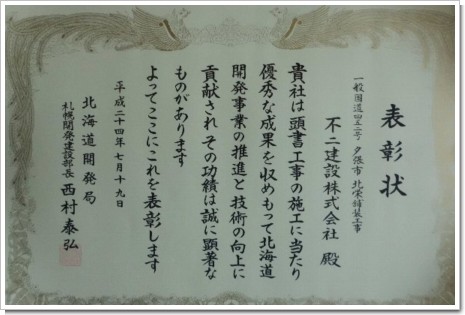 表彰状
一般国道四五二号 夕張市 北栄舗装工事
不二建設株式会社 殿
貴社は頭書工事の施工に当たり
優秀な成果を収めもって北海道
開発事業の推進と技術の向上に
貢献され その功績は誠に顕著な
ものがあります
よってここにこれを表彰します
平成二十四年七月十九日
北海道開発局
札幌開発建設部長 西村泰弘